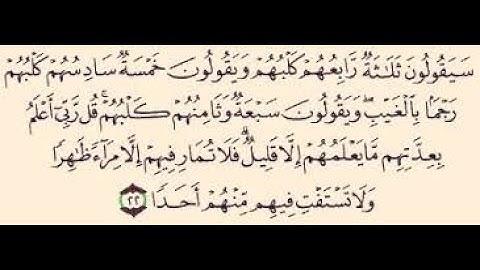 سَيَقُولُونَ ثَلَٰثَةٌ رَّابِعُهُمْ كَلْبُهُمْ وَيَقُولُونَ خَمْسَةٌ سَادِسُهُمْ كَلْبُهُمْ
رَجْمًۢا بِٱلْغَيْبِ ۖ وَيَقُولُونَ سَبْعَةٌ وَثَامِنُهُمْ كَلْبُهُمْ ۚ قُل رَّبِّىٓ أَعْلَمُ
بِعِدَّتِهِم مَّا يَعْلَمُهُمْ إِلَّا قَلِيلٌ ۗ فَلَا تُمَارِ فِيهِمْ إِلَّا مِرَآءً ظَٰهِرًا
وَلَا تَسْتَفْتِ فِيهِم مِّنْهُمْ أَحَدًا ۝٢٢